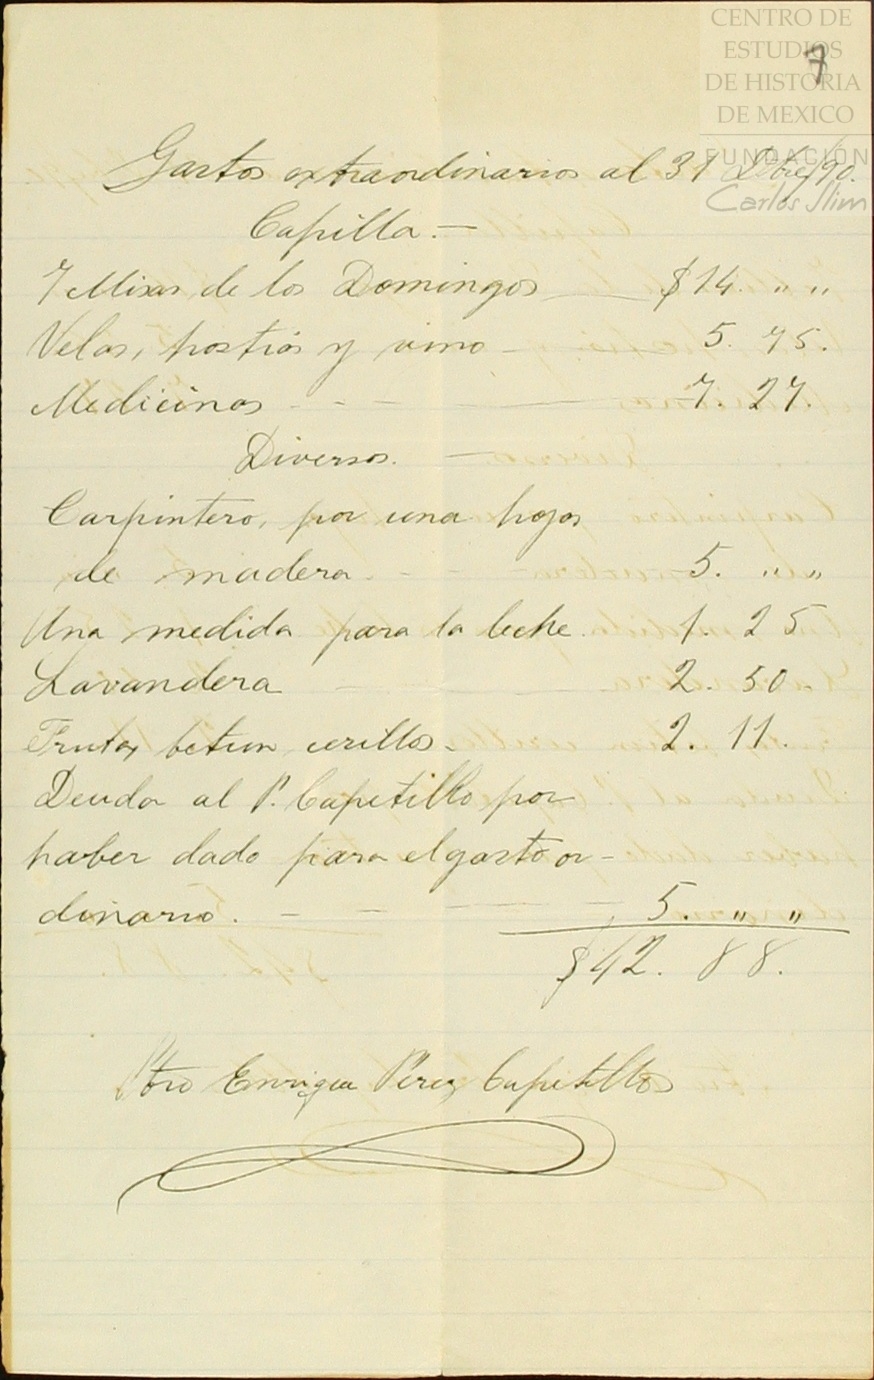 CENTRO DE
ESTUDIOS
DE HISTORIA
DE MEXICO
FUNDACIÓN
Carlos Slim
7
Gastos extraordinarios al 31 Dbre/90.
Capilla.—
7 Misas de los Domingos $14. " "
Velas, hostias y vino 5. 75.
Medicinas - - - 7. 27.
Diversos. —
Carpintero, por una hojas
de madera. - - 5. " "
Una medida para la leche. 1. 25
Lavandera 2. 50.
Frutas, betun, cerillos. 2. 11.
Deuda al P. Capetillo por
haber dado para el gasto or-
dinario. - - 5. " "
$42. 88.
Pbro Enrique Pérez Capetillo